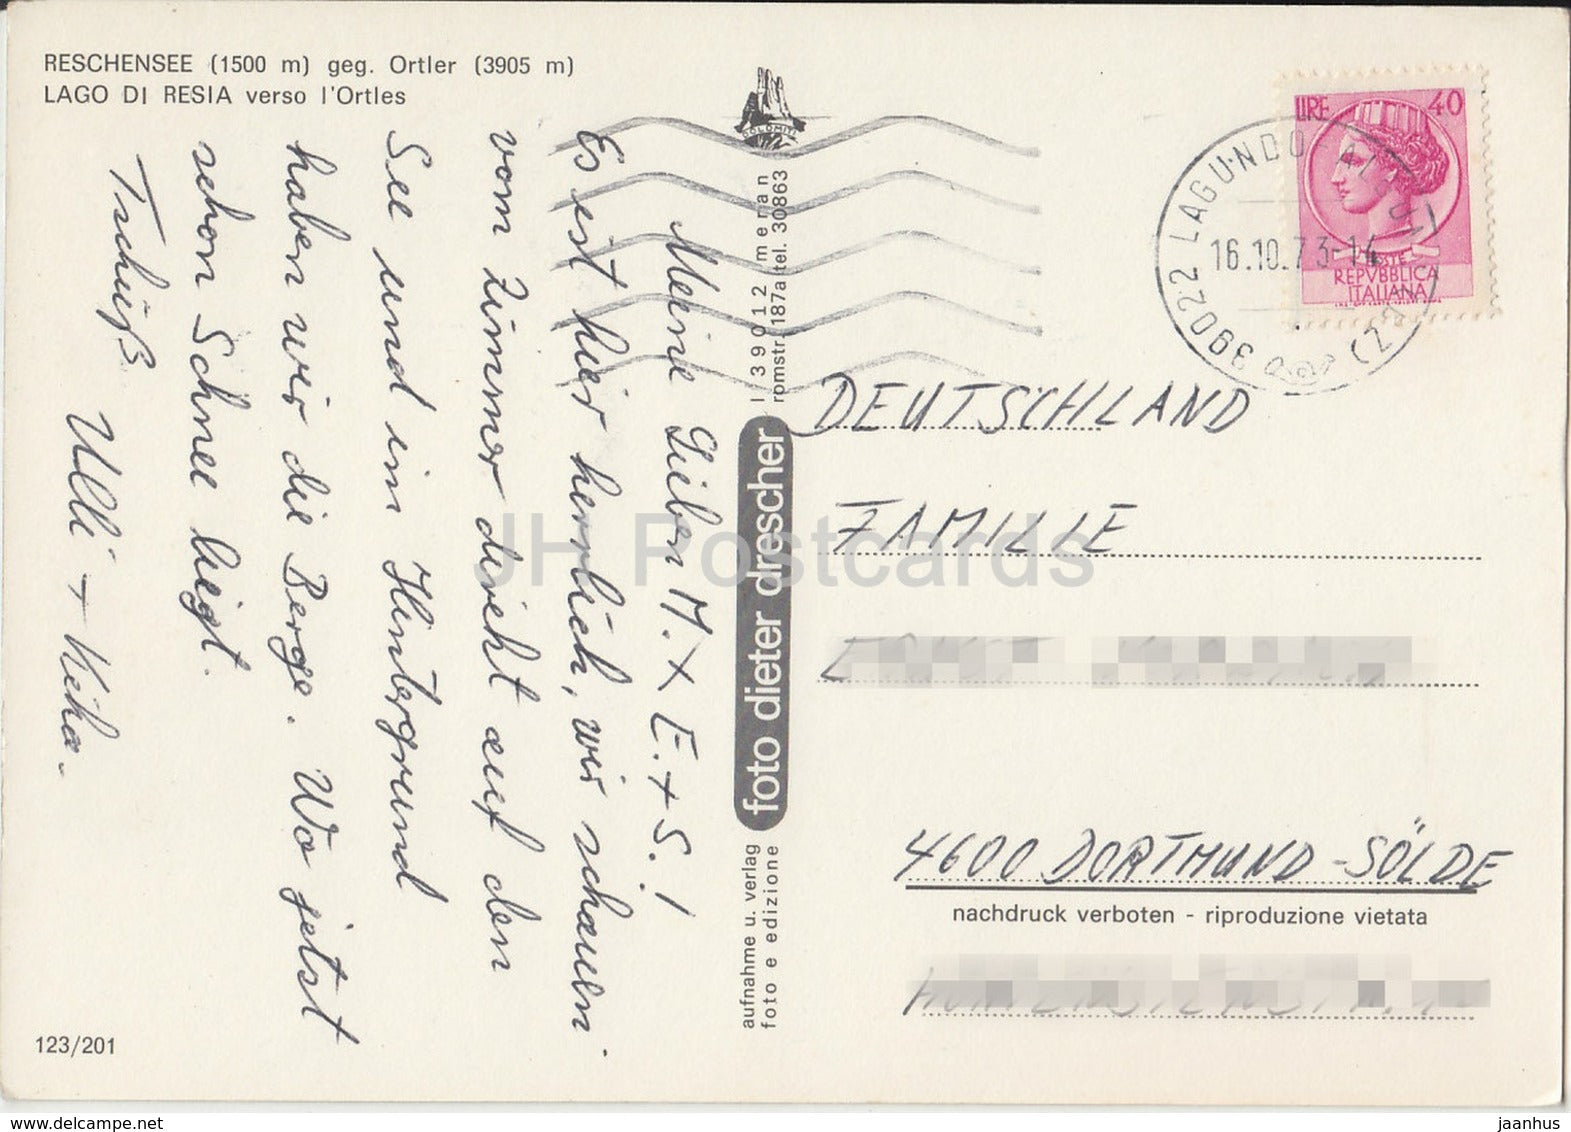 RESCHENSEE (1500 m) geg. Ortler (3905 m)
LAGO DI RESIA verso l'Ortles
Meine Lieben M. + E. + S.!
Es ist hier herrlich, wir schauen
vom Zimmer direkt auf den
See und im Hintergrund
haben wir die Berge. Wo jetzt
schon Schnee liegt.
Tschüß
Ulli + Keka.
123/201
DOLOMITI
I 39012 meran
romstr. 187a tel. 30863
foto dieter drescher
aufnahme u. verlag
foto e edizione
LIRE 40
POSTE
REPVBBLICA
ITALIANA
39022 LAGUNDO-ALGUND (BZ)
16.10.73-14
DEUTSCHLAND
FAMILIE
4600 DORTMUND-SÖLDE
nachdruck verboten - riproduzione vietata
JH Postcards
delcampe.net
jaanhus